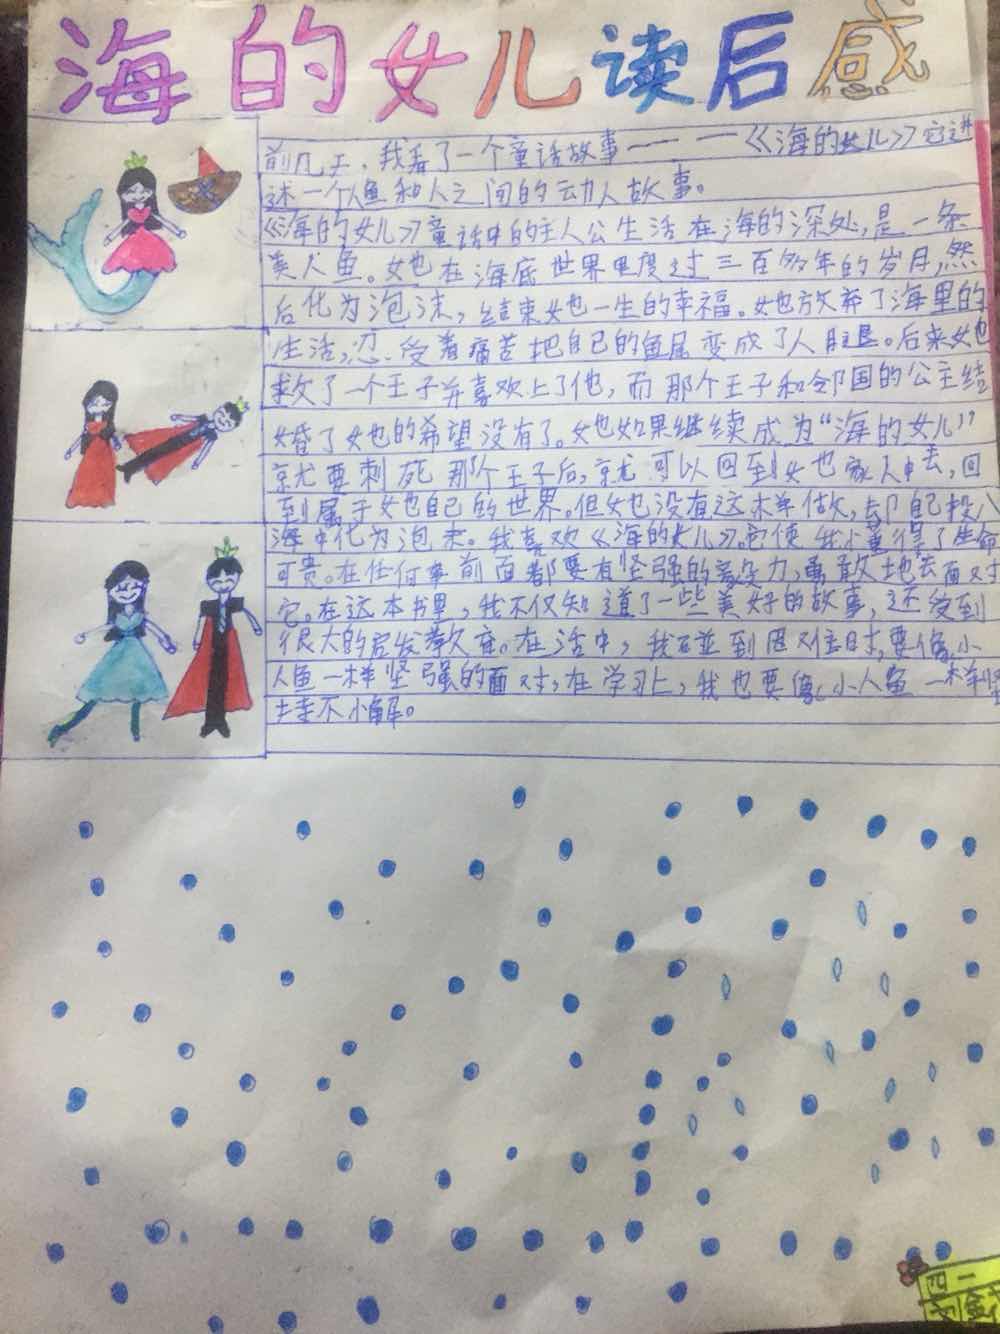 海的女儿读后感
前几天,我看了一个童话故事———《海的女儿》它讲
述一个人鱼和人之间的动人故事。
《海的女儿》童话中的主人公生活在海的深处,是一条
美人鱼。她在海底世界里度过三百多年的岁月,然
后化为泡沫,结束她一生的幸福。她放弃了海里的
生活,忍受着痛苦把自己的鱼尾变成了人腿。后来她
救了一个王子并喜欢上了他,而那个王子和邻国的公主结
婚了她的希望没有了。她如果继续成为“海的女儿”
就要刺死那个王子后,就可以回到她家人中去,回
到属于她自己的世界。但她没有这样做,却自己投入
海中化为泡末。我喜欢《海的女儿》。它使我懂得了生命
可贵。在任何事前面都要有坚强的意力,勇敢地去面对
它。在这本书里,我不仅知道了一些美好的故事,还受到
很大的启发教育。在活中,我碰到困难时,要像小
人鱼一样坚强的面对,在学习上,我也要像小人鱼一样坚
持不懈。
四一